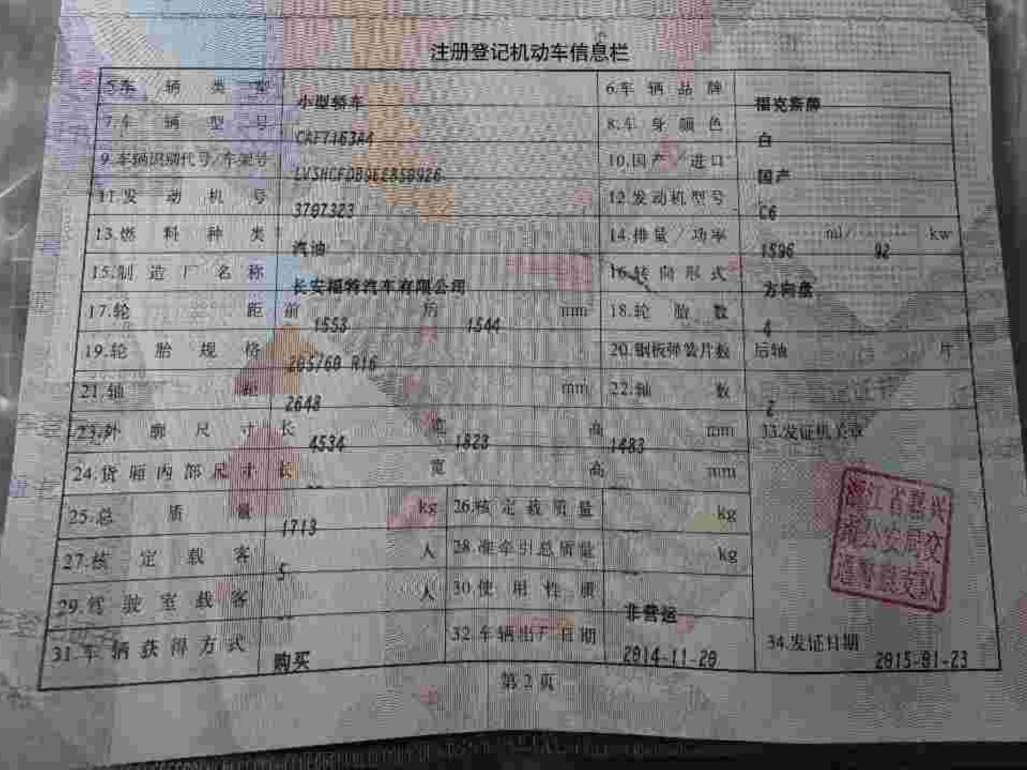 注册登记机动车信息栏
5.车辆类型 小型轿车 6.车辆品牌 福克斯牌
7.车辆型号 CAF7163A4 8.车身颜色 白
9.车辆识别代号/车架号 10.国产/进口 国产
11.发动机号 3707323 12.发动机型号 C6
13.燃料种类 汽油 14.排量/功率 1596 ml/ 92 kw
15.制造厂名称 长安福特汽车有限公司 16.转向形式 方向盘
17.轮距 前 1553 后 1544 mm 18.轮胎数 4
19.轮胎规格 205/60 R16 20.钢板弹簧片数 后轴 片
21.轴距 2648 mm 22.轴数 2
23.外廓尺寸 长 4534 宽 1823 高 1483 mm 33.发证机关章
24.货厢内部尺寸 长 -- 宽 高 mm
25.总质量 1713 kg 26.核定载质量 -- kg
27.核定载客 5 人 28.准牵引总质量 -- kg
29.驾驶室载客 -- 人 30.使用性质 非营运
31.车辆获得方式 购买 32.车辆出厂日期 2014-11-20 34.发证日期 2015-01-23
浙江省嘉兴
市公安局交
通警察支队
第2页